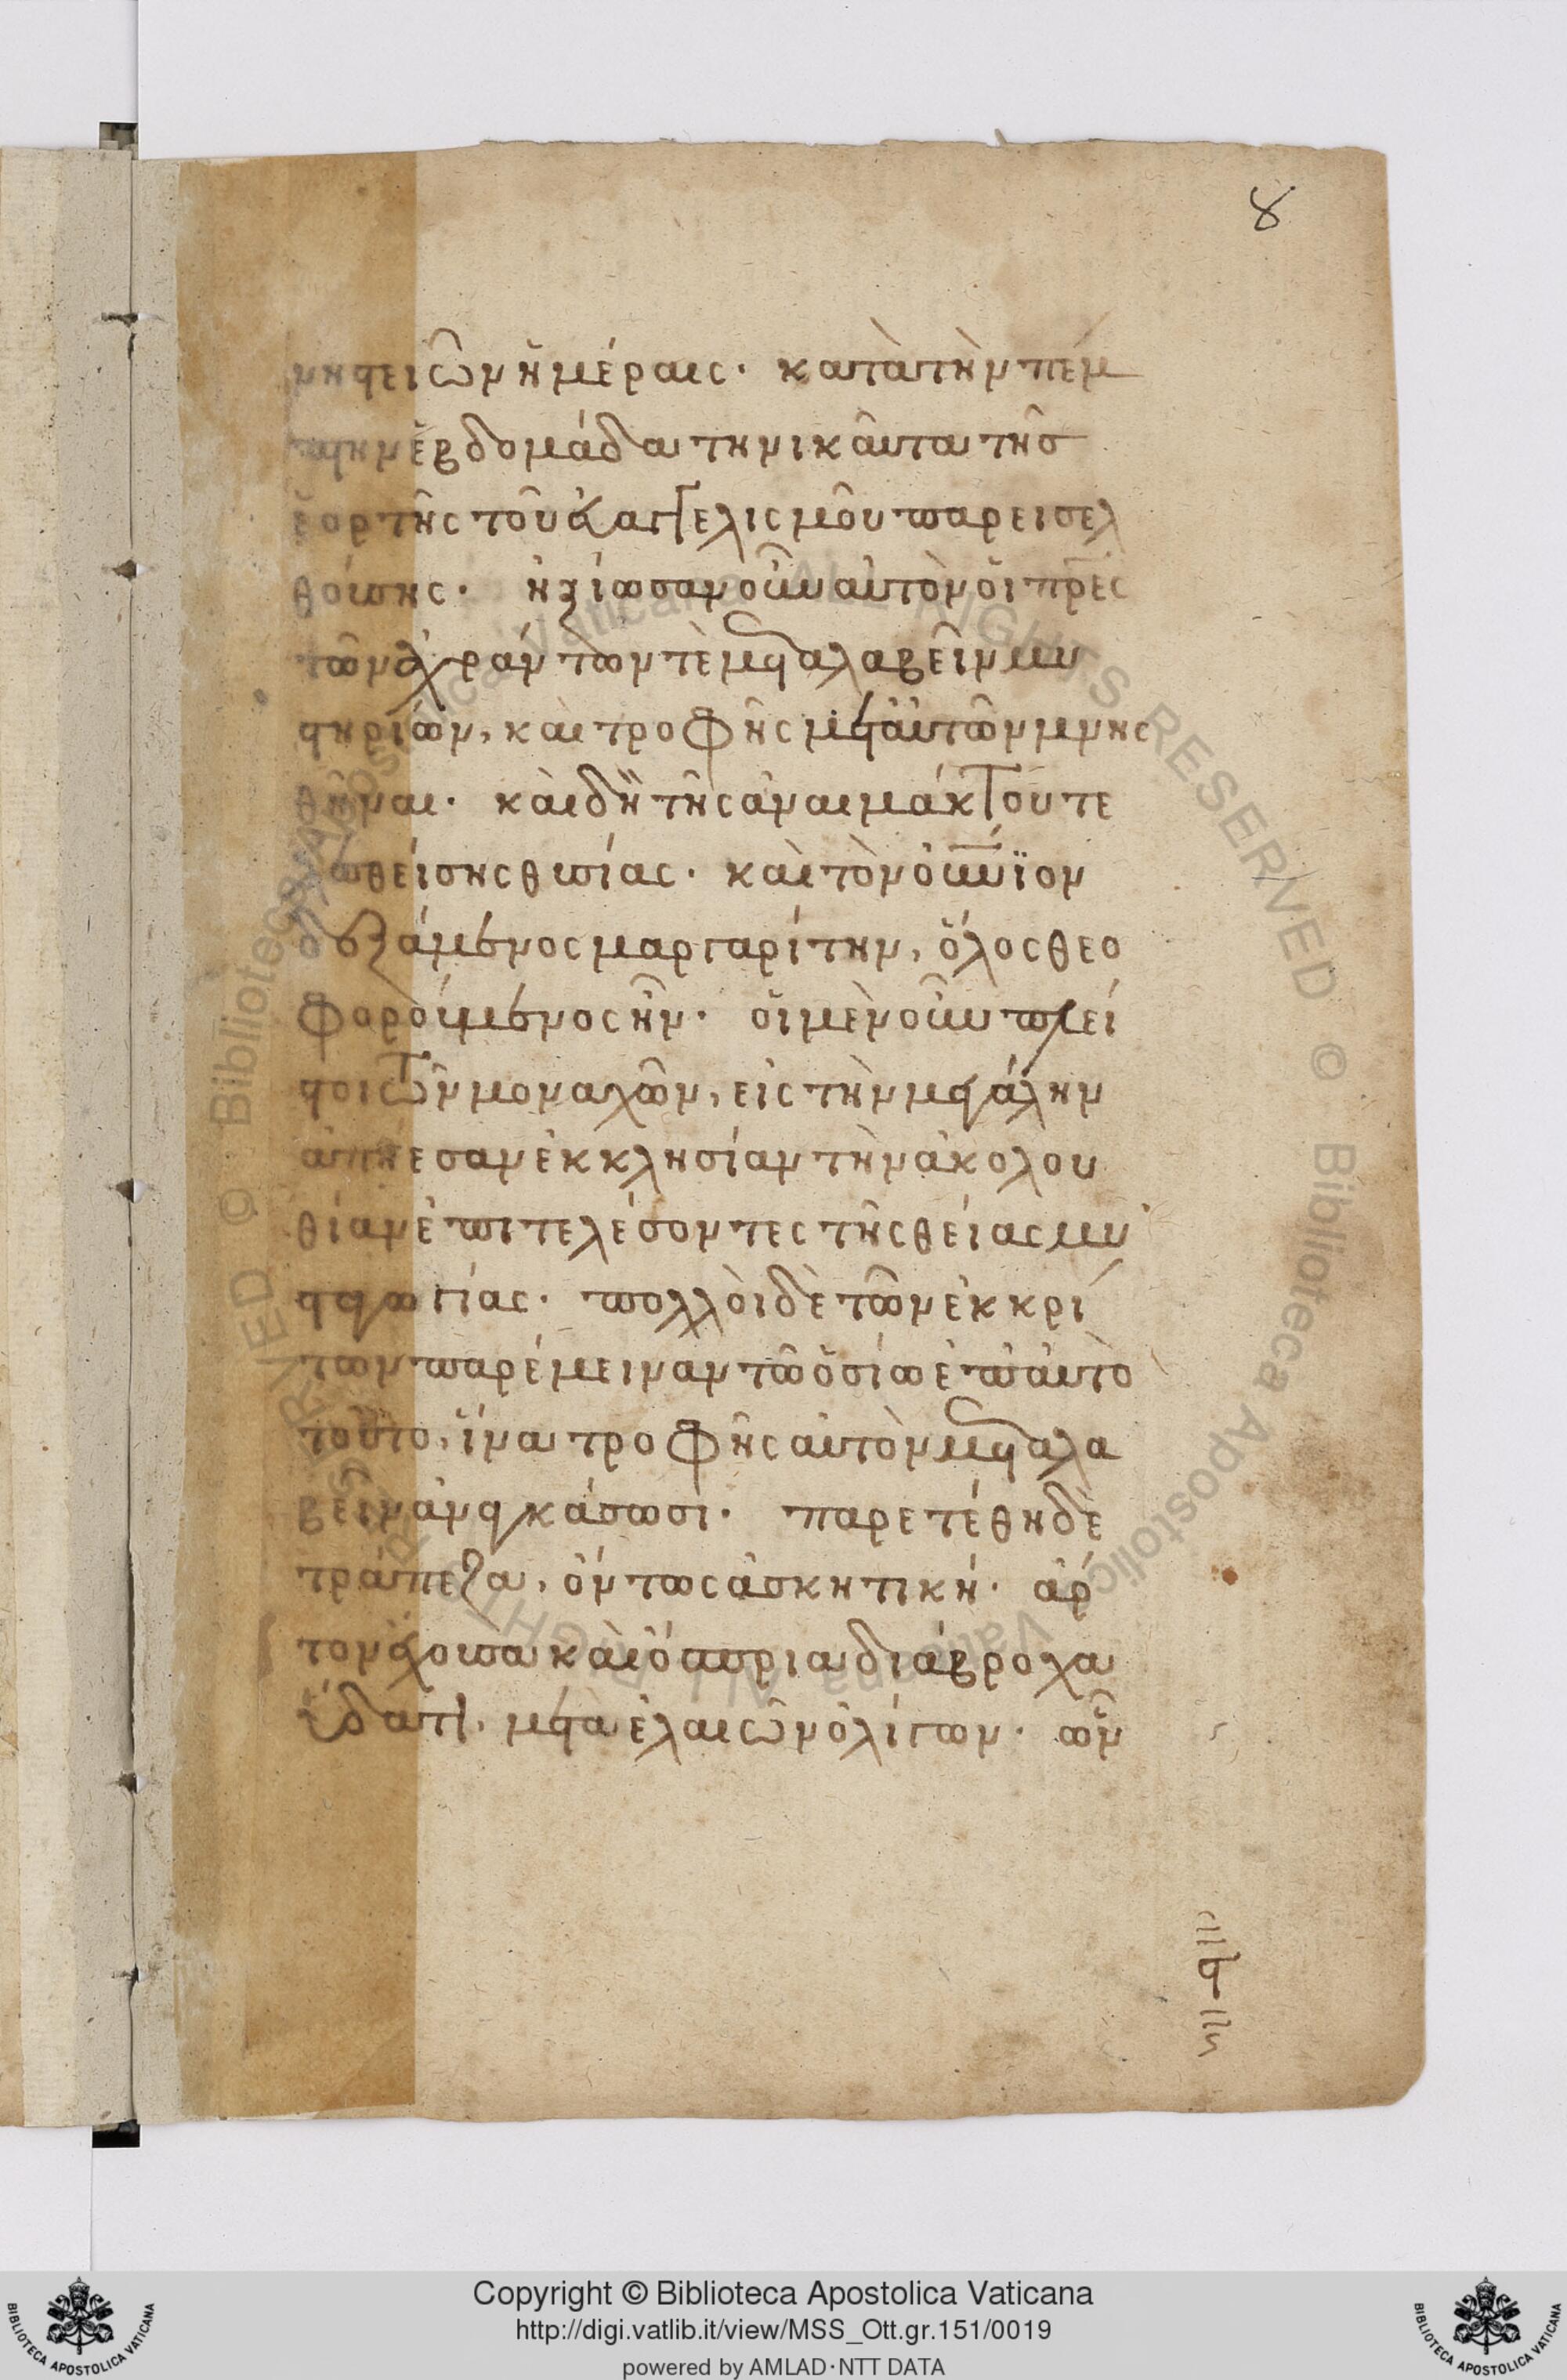 8
νηστειῶν ἡμέραις· κατὰ τὴν πέμ
πτην ἑβδομάδα τηνικαῦτα τῆς
ἑορτῆς τοῦ εὐαγγελισμοῦ παρεισελ
θούσης· ἠξίωσαν οὖν αὐτὸν οἱ πρ̅ες
τῶν ἀχράντων τὲ μεταλαβεῖν μυ
στηρίων, καὶ τροφῆς μετ' αὐτῶν μνης
θῆναι· καὶ δὴ τῆς ἀναιμάκτου τε
λεσθείσης θυσίας· καὶ τὸν οὐ̅νιον
ὁ δεξάμενος μαργαρίτην, ὅλος θεο
φορούμενος ἦν· οἱ μὲν οὖν πλεί
στοι τῶν μοναχῶν, εἰς τὴν μεγάλην
ἀπήεσαν ἐκκλησίαν τὴν ἀκολου
θίαν ἐπιτελέσοντες τῆς θείας μυ
σταγωγίας· πολλοὶ δὲ τῶν ἐκκρί
των παρέμειναν τῶ ὁσίω ἐπ' αὐτὸ
τοῦτο, ἵνα τροφῆς αὐτὸν μεταλα
βεῖν ἀναγκάσωσι· παρετέθη δὲ
τράπεζα, ὄντως ἀσκητική· ἄρ
τον ἔχουσα καὶ ὄσπρια διάβροχα
ὕδατι, μετὰ ἐλαιῶν ὀλίγων· ὧν
Copyright © Biblioteca Apostolica Vaticana
http://digi.vatlib.it/view/MSS_Ott.gr.151/0019
powered by AMLAD·NTT DATA
BIBLIOTECA APOSTOLICA VATICANA
BIBLIOTECA APOSTOLICA VATICANA